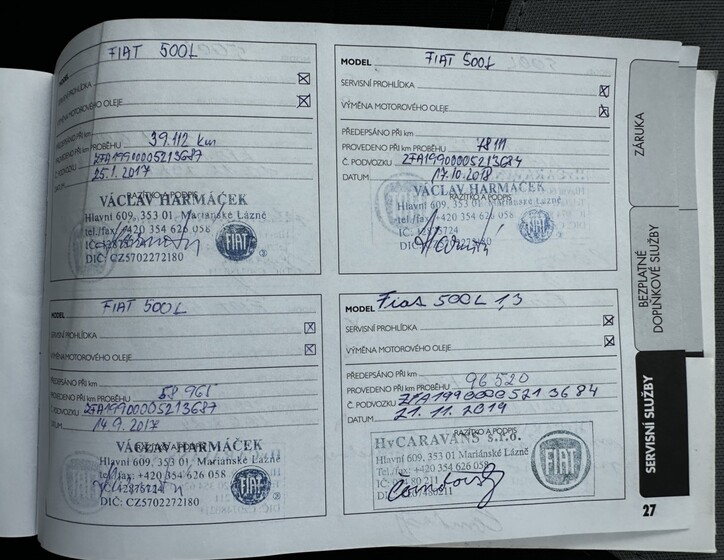 MODEL FIAT 500L
SERVISNÍ PROHLÍDKA
VÝMĚNA MOTOROVÉHO OLEJE
PŘEDEPSÁNO PŘI km
PROVEDENO PŘI km PROBĚHU 39.112 km
Č. PODVOZKU ZFA19900005213687
DATUM 25.1.2017
RAZÍTKO A PODPIS
VÁCLAV HARMÁČEK
Hlavní 609, 353 01 Mariánské Lázně
tel./fax: +420 354 626 058
IČ:
DIČ: CZ5702272180
FIAT
MODEL FIAT 500L
SERVISNÍ PROHLÍDKA
VÝMĚNA MOTOROVÉHO OLEJE
PŘEDEPSÁNO PŘI km
PROVEDENO PŘI km PROBĚHU 78111
Č. PODVOZKU ZFA19900005213684
DATUM 17.10.2018
RAZÍTKO A PODPIS
VÁCLAV HARMÁČEK
Hlavní 609, 353 01 Mariánské Lázně
tel./fax: +420 354 626 058
IČ:
DIČ:
FIAT
MODEL FIAT 500L
SERVISNÍ PROHLÍDKA
VÝMĚNA MOTOROVÉHO OLEJE
PŘEDEPSÁNO PŘI km
PROVEDENO PŘI km PROBĚHU 58 961
Č. PODVOZKU ZFA19900005213687
DATUM 14.9.2017
VÁCLAV HARMÁČEK
Hlavní 609, 353 01 Mariánské Lázně
tel./fax: +420 354 626 058
DIČ: CZ5702272180
FIAT
MODEL Fiat 500L 1,3
SERVISNÍ PROHLÍDKA
VÝMĚNA MOTOROVÉHO OLEJE
PŘEDEPSÁNO PŘI km
PROVEDENO PŘI km PROBĚHU 96 520
Č. PODVOZKU ZFA19900005213684
DATUM 21.11.2019
RAZÍTKO A PODPIS
HvCARAVANS s.r.o.
Hlavní 609, 353 01 Mariánské Lázně
Tel./fax: +420 354 626 058
FIAT
ZÁRUKA
BEZPLATNÉ
DOPLŇKOVÉ SLUŽBY
SERVISNÍ SLUŽBY
27